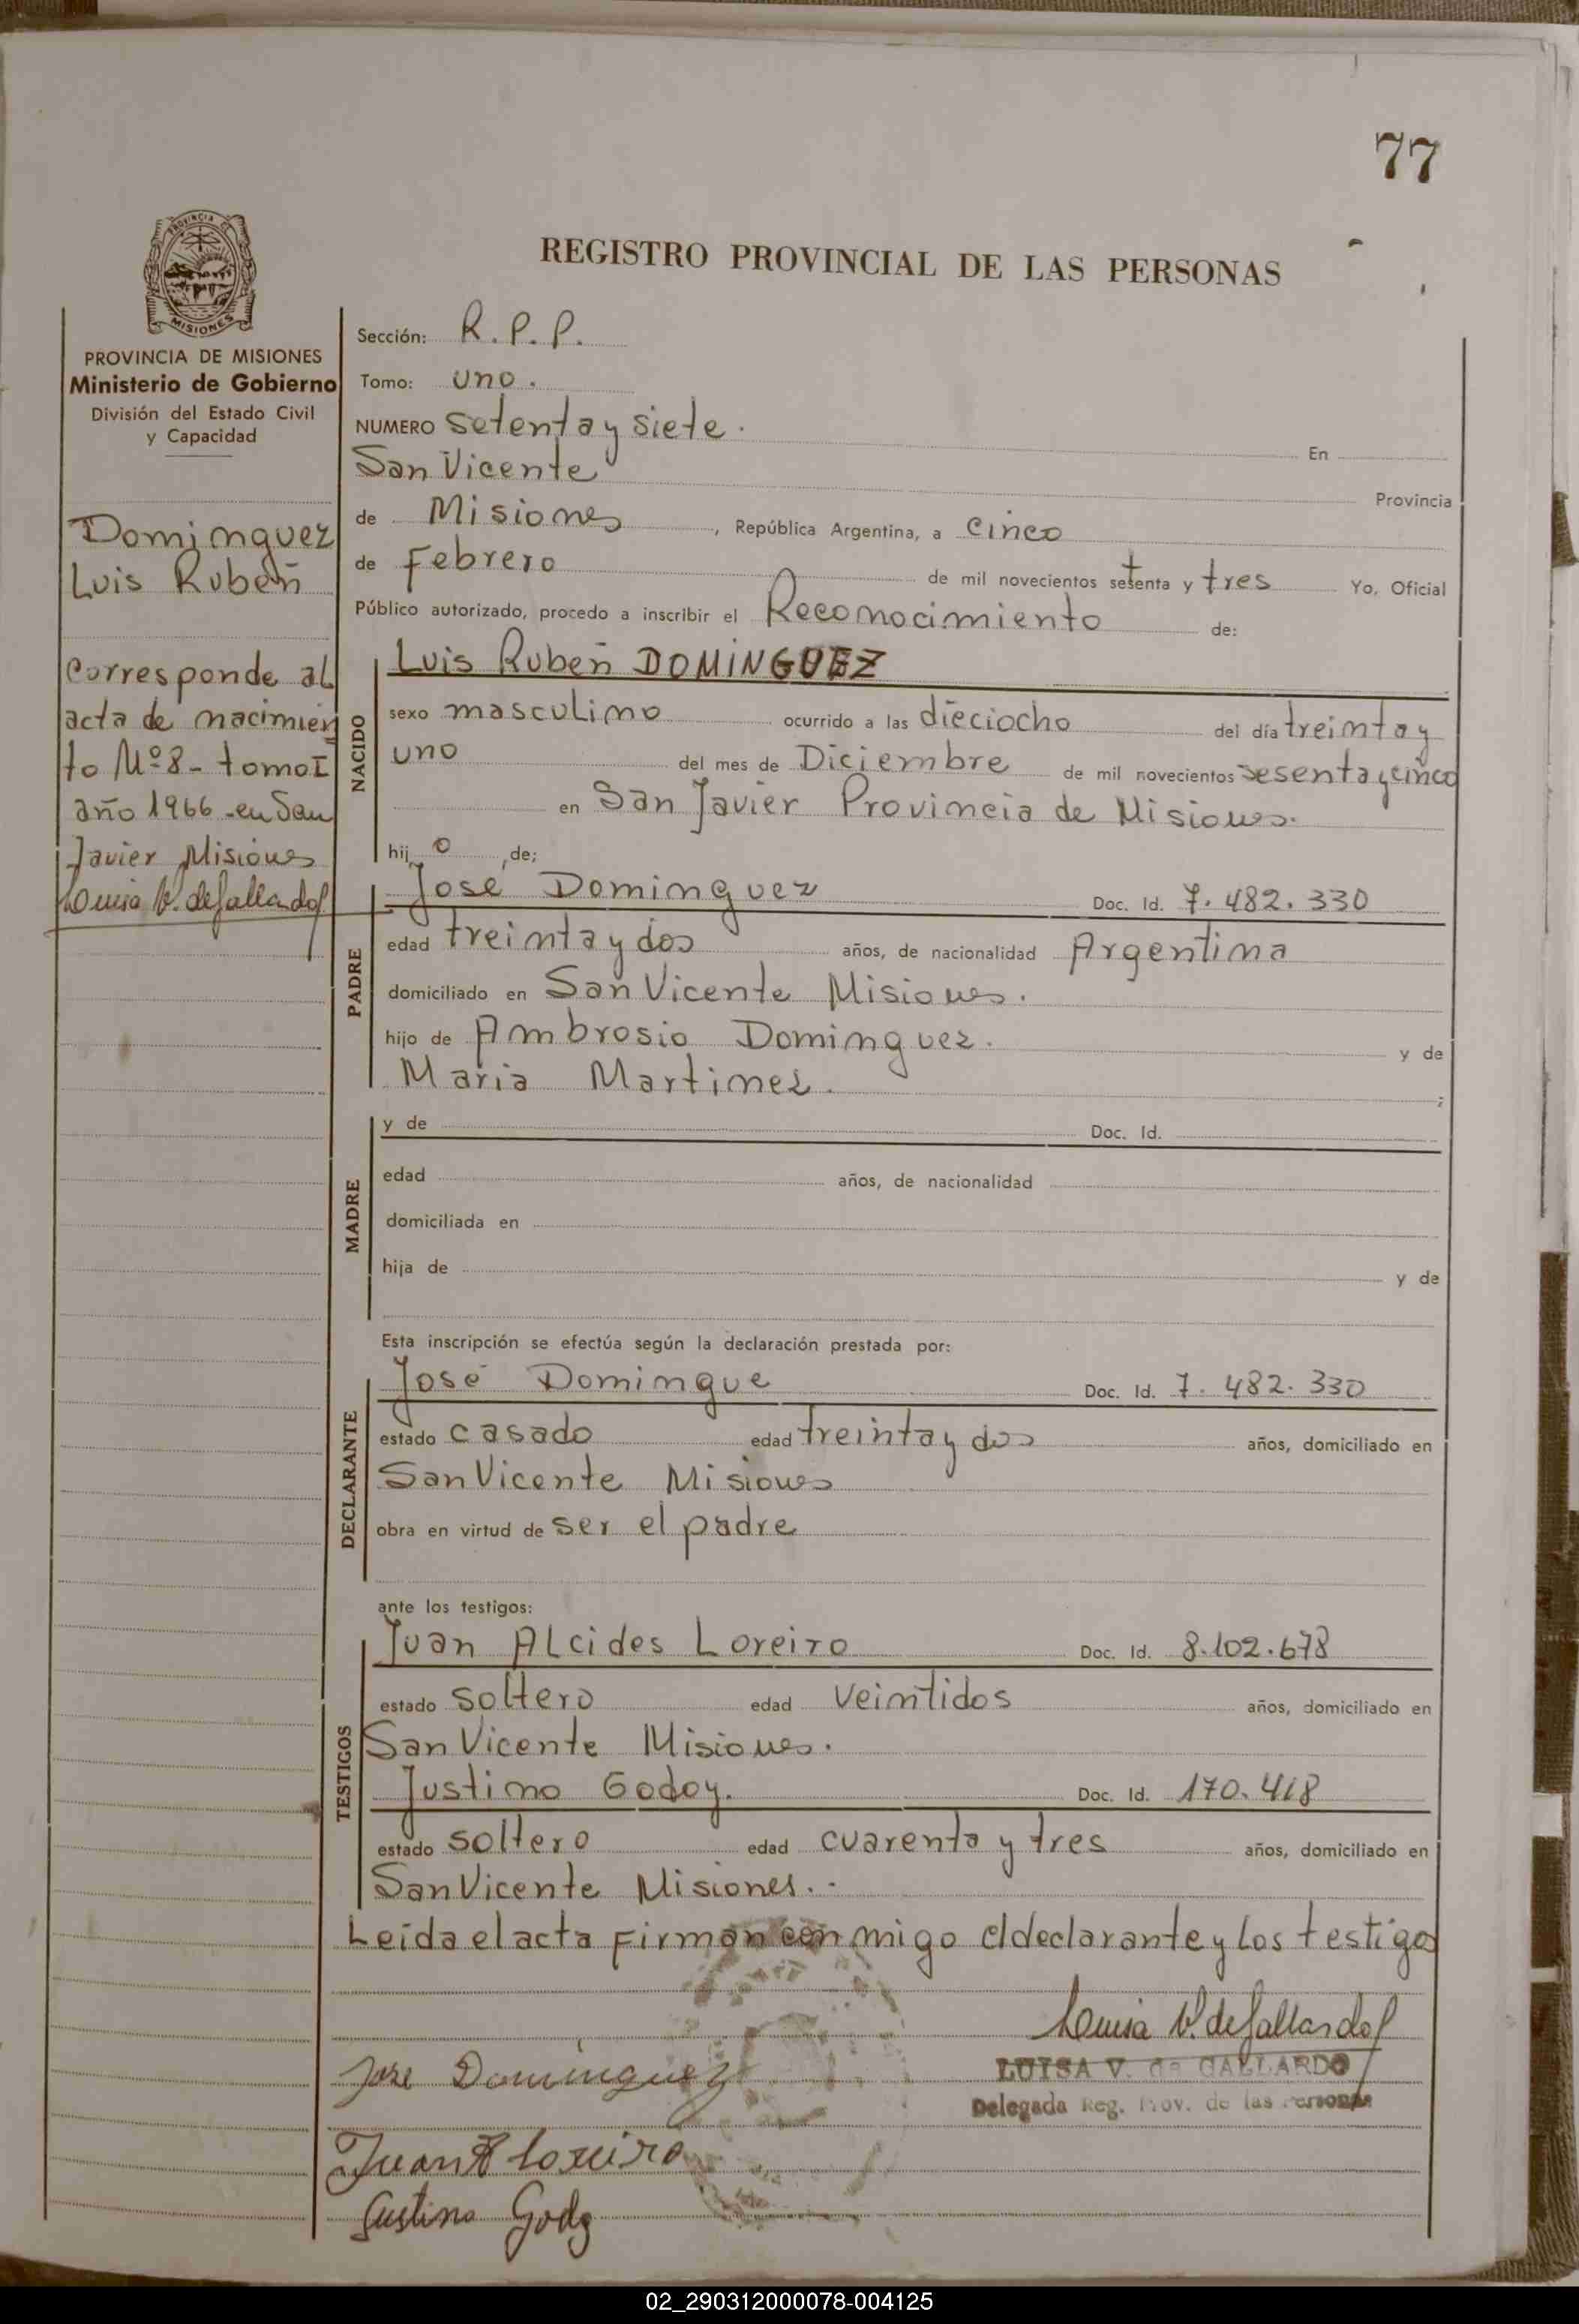 77
PROVINCIA
MISIONES
PROVINCIA DE MISIONES
Ministerio de Gobierno
División del Estado Civil
y Capacidad
Dominguez
Luis Rubén
Corresponde al
acta de nacimien
to Nº 8 - tomo I
año 1966 - en San
Javier Misiones
Luisa V. de Gallardo
REGISTRO PROVINCIAL DE LAS PERSONAS
Sección: R.P.P.
Tomo: uno.
NUMERO setenta y siete. En
San Vicente Provincia
de Misiones, República Argentina, a cinco
de Febrero de mil novecientos setenta y tres Yo, Oficial
Público autorizado, procedo a inscribir el Reconocimiento de:
NACIDO
Luis Rubén DOMINGUEZ
sexo masculino ocurrido a las dieciocho del día treinta y
uno del mes de Diciembre de mil novecientos sesenta y cinco
en San Javier Provincia de Misiones.
hijo, de;
PADRE
José Dominguez Doc. Id. 7.482.330
edad treinta y dos años, de nacionalidad Argentina
domiciliado en San Vicente Misiones.
hijo de Ambrosio Dominguez. y de
Maria Martinez. ;
MADRE
y de Doc. Id.
edad años, de nacionalidad
domiciliada en
hija de y de
Esta inscripción se efectúa según la declaración prestada por:
DECLARANTE
José Domingue Doc. Id. 7.482.330
estado casado edad treinta y dos años, domiciliado en
San Vicente Misiones
obra en virtud de ser el padre
ante los testigos:
TESTIGOS
Juan Alcides Loreiro Doc. Id. 8.102.678
estado soltero edad veintidos años, domiciliado en
San Vicente Misiones.
Justino Godoy. Doc. Id. 170.418
estado soltero edad cuarenta y tres años, domiciliado en
San Vicente Misiones..
Leída el acta firman con migo el declarante y los testigos
Luisa V. de Gallardo
LUISA V. de GALLARDO
Delegada Reg. Prov. de las Personas
José Dominguez
Juan A Loreiro
Justino Godoy
02_290312000078-004125